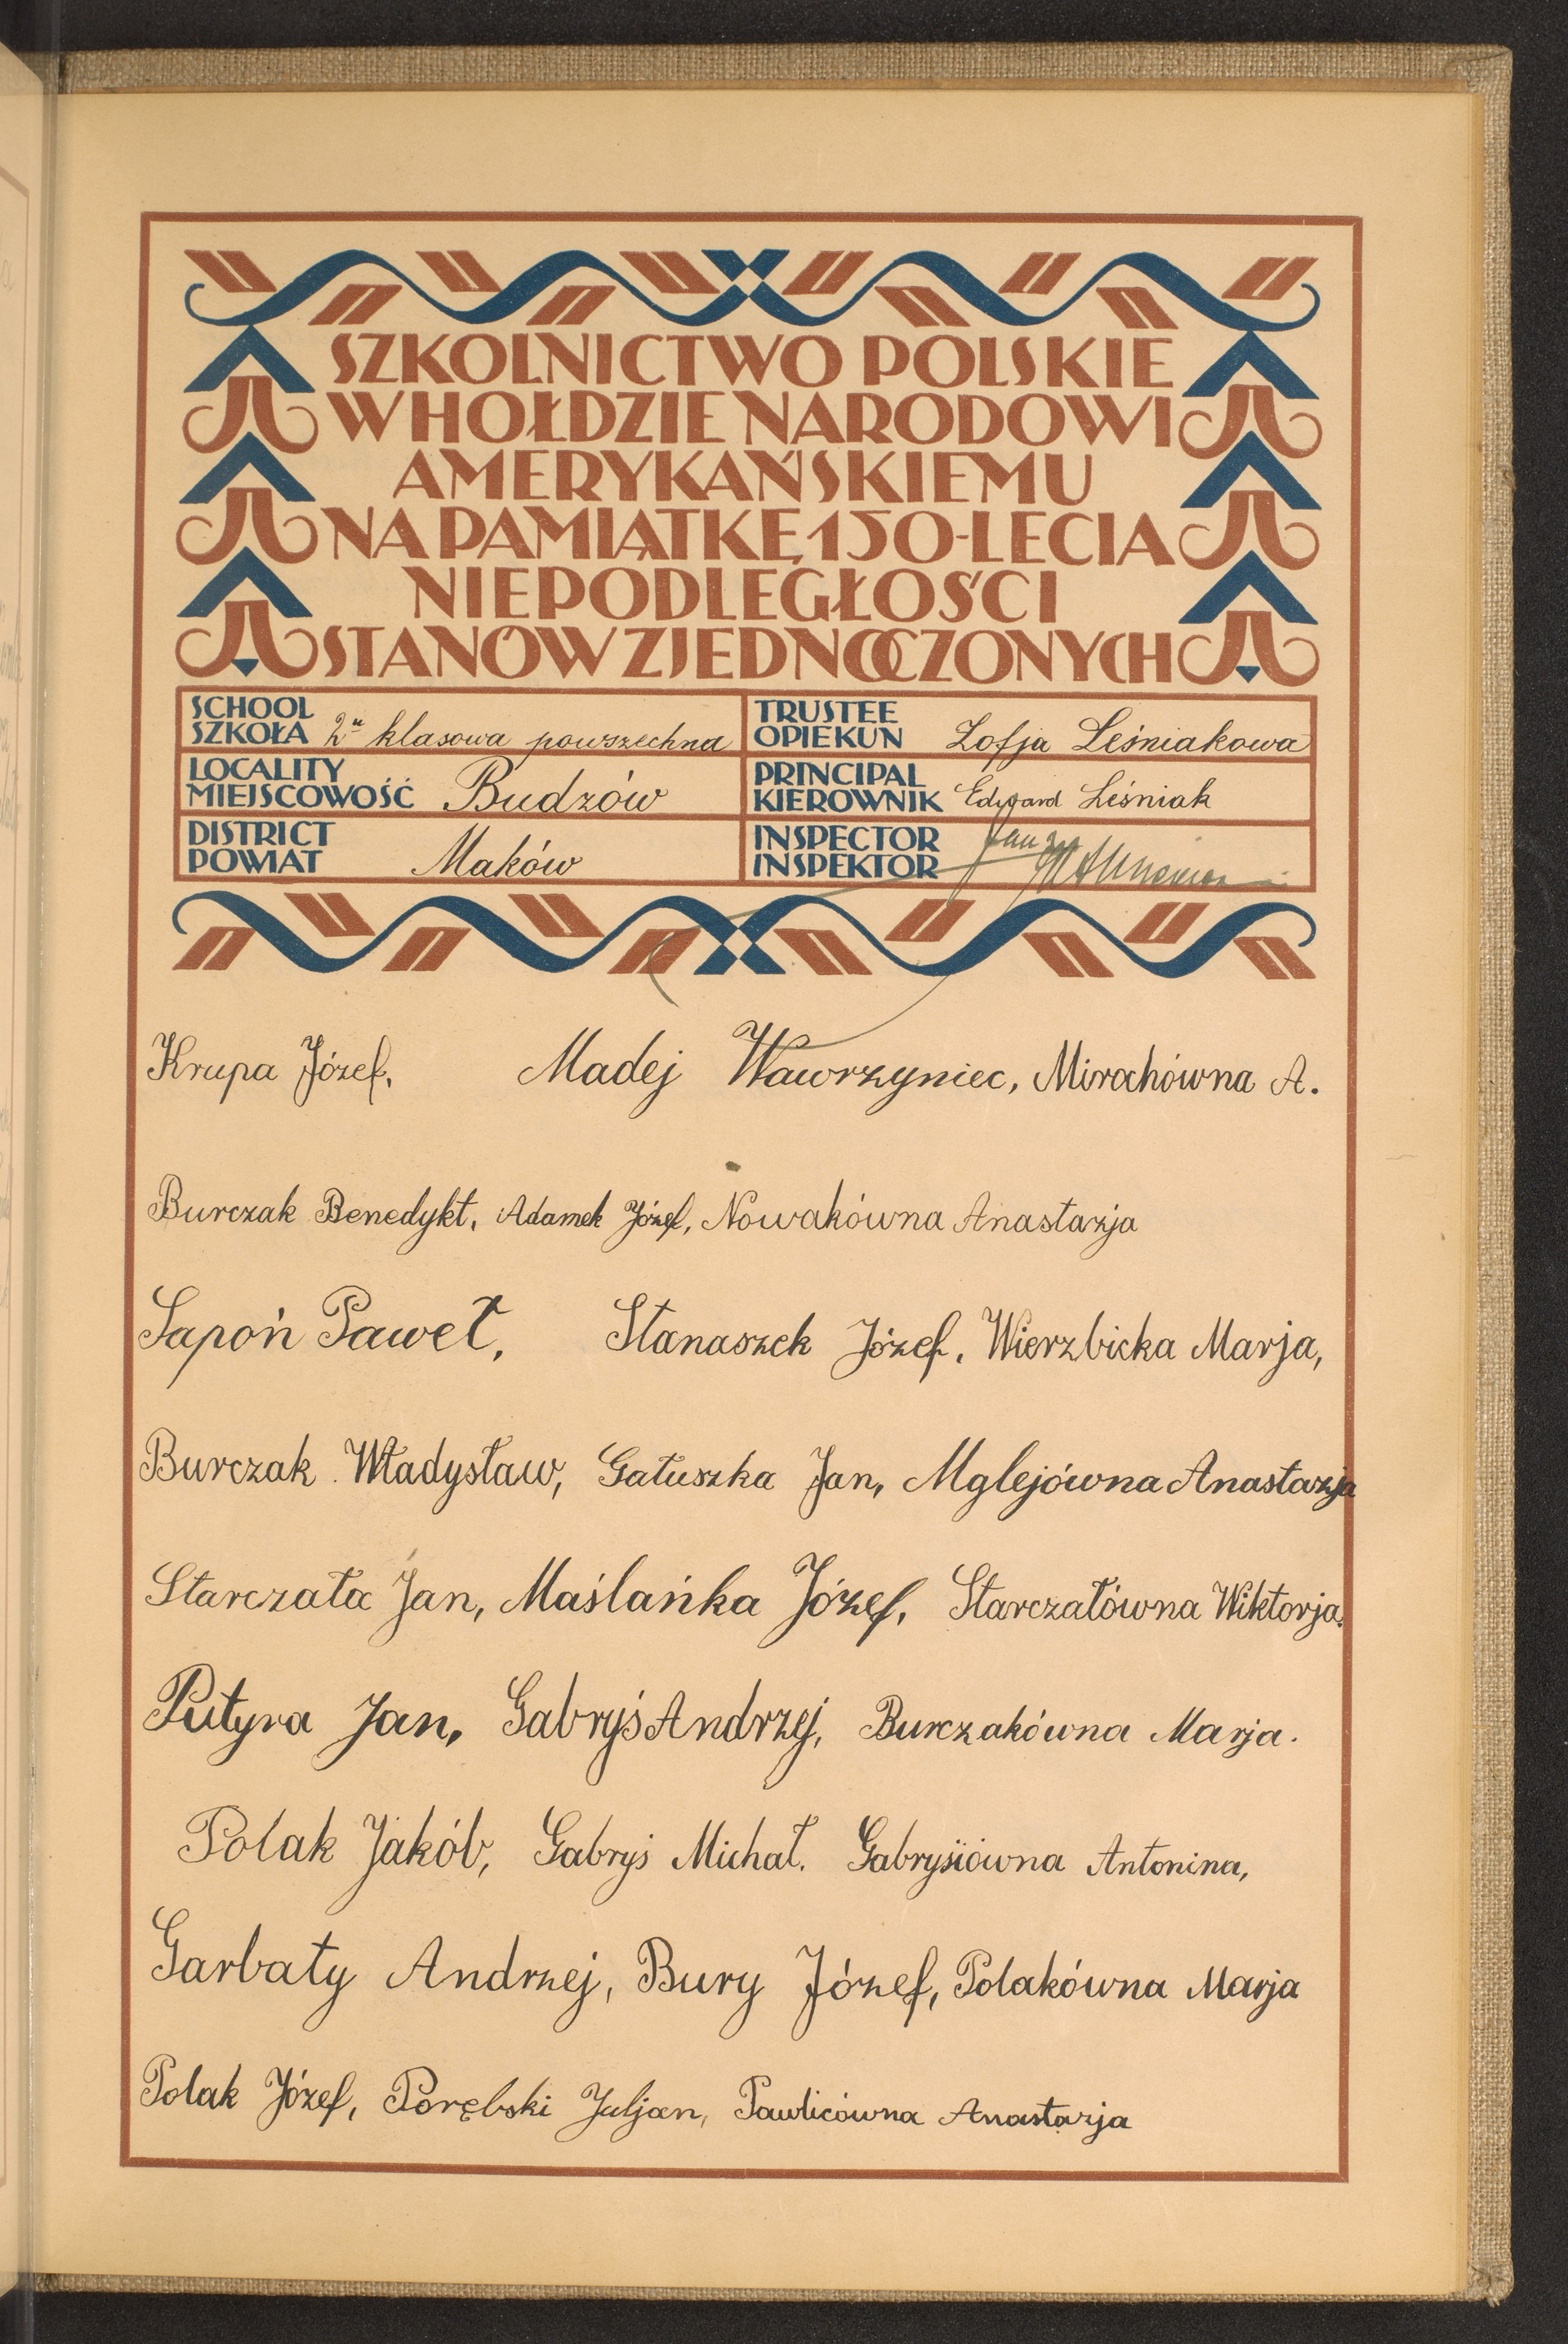 SZKOLNICTWO POLSKIE
W HOŁDZIE NARODOWI
AMERYKAŃSKIEMU
NA PAMIĄTKĘ 150-LECIA
NIEPODLEGŁOŚCI
STANÓW ZJEDNOCZONYCH
SCHOOL
SZKOŁA 2u klasowa powszechna
TRUSTEE
OPIEKUN Zofja Leśniakowa
LOCALITY
MIEJSCOWOŚĆ Budzów
PRINCIPAL
KIEROWNIK Edward Leśniak
DISTRICT
POWIAT Maków
INSPECTOR
INSPEKTOR
Krupa Józef, Madej Wawrzyniec, Mirochówna A.
Burczak Benedykt, Adamek Józef, Nowakówna Anastazja
Sapoń Paweł, Stanaszek Józef, Wierzbicka Marja,
Burczak Władysław, Gałuszka Jan, Mglejówna Anastazja
Starczała Jan, Maślańka Józef, Starczałówna Wiktorja.
Putyra Jan, Gabryś Andrzej, Burczakówna Marja.
Polak Jakób, Gabryś Michał. Gabrysiówna Antonina,
Garbaty Andrzej, Bury Józef, Polakówna Marja
Polak Józef, Porębski Juljan, Pawlicówna Anastazja